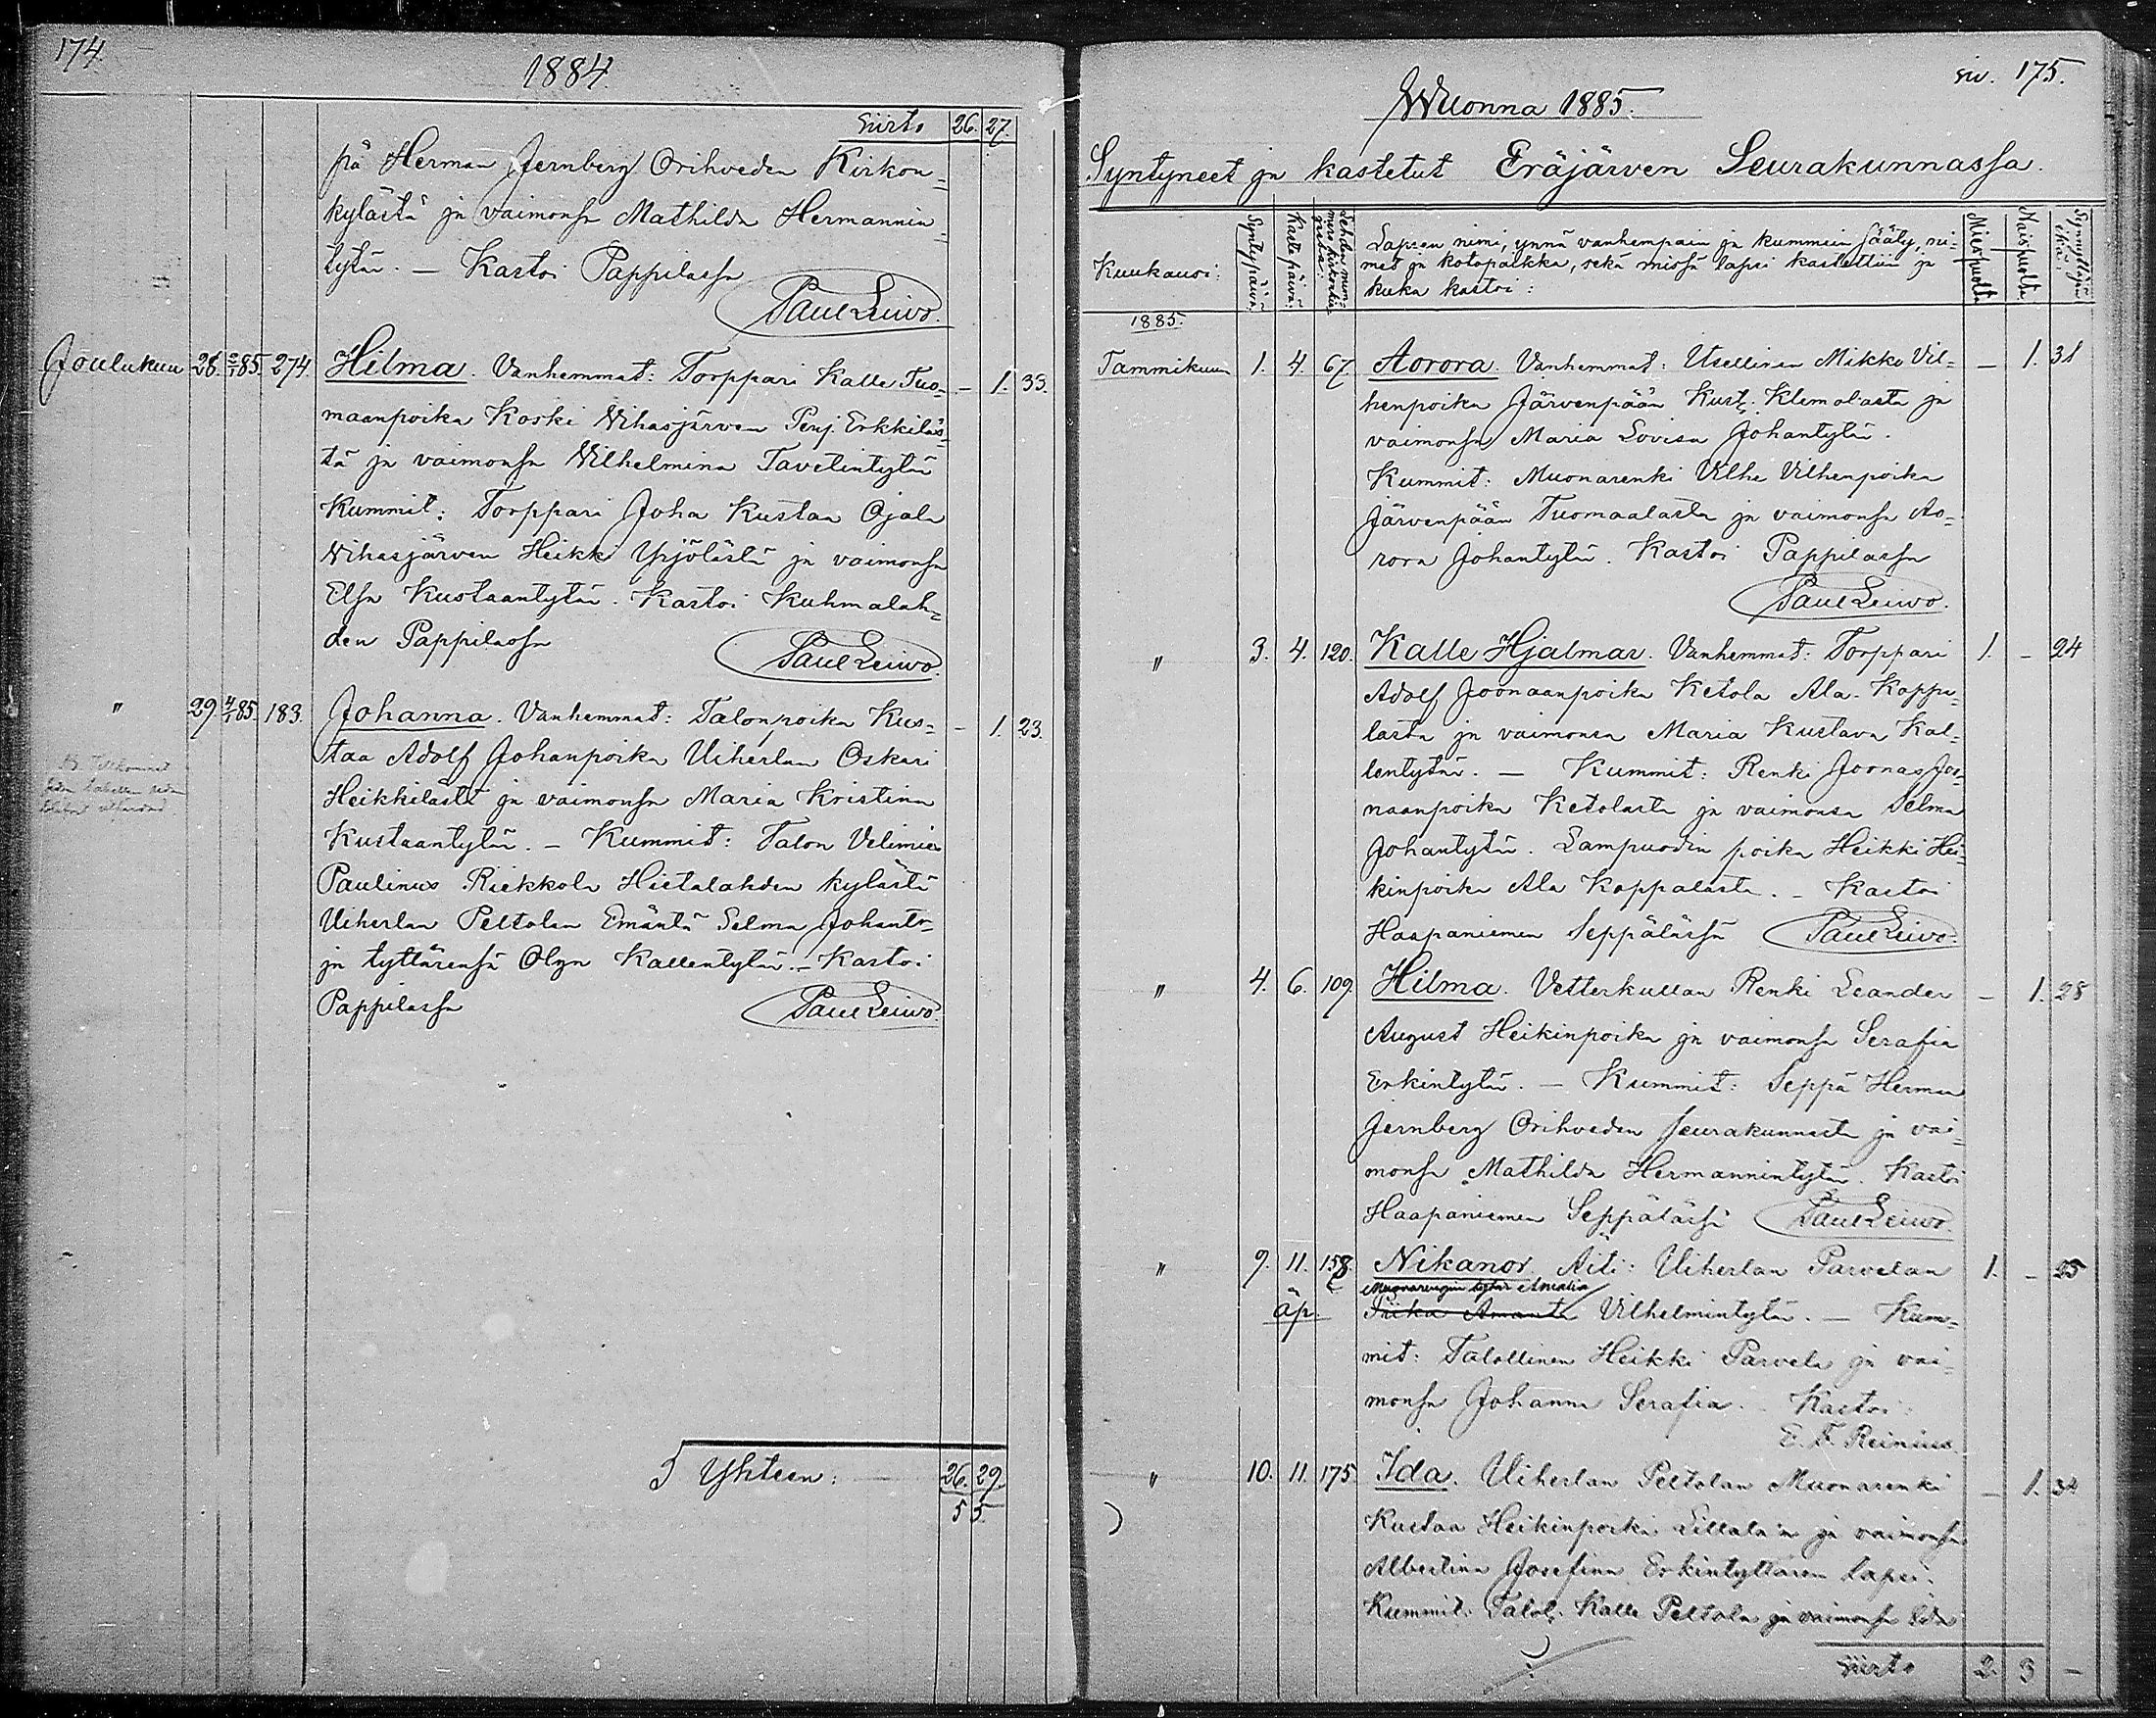 174.
1884.
Siirto 26. 27.
pä Herman Jernberg Orihveden Kirkon=
kylästä ja vaimonsa Mathilda Hermannin=
tytär. – Kastoi Pappilassa
Paul Leiwo.
Joulukuu 28. 2/1 85. 274. Hilma. Vanhemmat: Torppari Kalle Tuo= – 1. 33.
maanpoika Koski Wihasjärven Penj. Erkkiläs=
tä ja vaimonsa Wilhelmina Tavetintytär
Kummit: Torppari Joha Kustaa Ojala
Wihasjärven Heikki Yrjölästä ja vaimonsa
Elsa Kustaantytär. Kastoi Kuhmalah=
den Pappilassa
Paul Leiwo.
" 29. 4/1 85. 183. Johanna. Vanhemmat: Talonpoika Kus= – 1. 23.
taa Adolf Johanpoika Uiherlan Oskari
Heikkilästä ja vaimonsa Maria Kristina
Kustaantytär. – Kummit: Talon Velimies
Paulinus Riekkola Hietalahden kylästä
Uiherlan Peltolan Emäntä Selma Johantr
ja tyttärensä Olga Kallentytär. – Kastoi
Pappilassa
Paul Leiwo.
Yhteen: 26. 29.
55.
siv. 175.
Wuonna 1885.
Syntyneet ja kastetut Eräjärven Seurakunnassa.
Kuukausi:
Syntypäivä:
Kaste päivä:
Lapsen nimi, ynnä vanhempain ja kummein sääty, ni=
met ja kotopaikka, sekä missä lapsi kastettiin ja
kuka kastoi:
Miespuolta
Naispuolta
Synnyttäjän
ikä:
1885.
Tammikuu 1. 4. 67. Aorora. Vanhemmat: Itsellinen Mikko Vil= – 1. 31
henpoika Järvenpään Kust. Klemolasta ja
vaimonsa Maria Lovisa Johantytär.
Kummit: Muonarenki Vilhe Vilhenpoika
Järvenpään Tuomaalasta ja vaimonsa Ao=
rora Johantytär. Kastoi Pappilassa
Paul Leiwo.
" 3. 4. 120. Kalle Hjalmar. Vanhemmat: Torppari 1. – 24
Adolf Joonaanpoika Ketola Ala-Koppa=
lasta ja vaimonsa Maria Kustava Kal=
lentytär. – Kummit: Renki Joonas Joo=
naanpoika Ketolasta ja vaimonsa Selma
Johantytär. Lampuodin poika Heikki Hei=
kinpoika Ala Koppalasta. – Kastoi
Haapaniemen Seppälässä Paul Leiwo.
" 4. 6. 109. Hilma. Vetterkullan Renki Leander – 1. 28
August Heikinpoika ja vaimonsa Serafia
Erkintytär. – Kummit: Seppä Herman
Jernberg Orihveden seurakunnasta ja vai=
monsa Mathilda Hermannintytär. Kastoi
Haapaniemen Seppälässä Paul Leiwo.
" 9. 11. 158. Nikanor. Äiti: Uiherlan Parvelan 1. – 25
Muonarengin tytär Amalia
äp. Iiika Amanta Vilhelmintytär. – Kum=
mit: Talollinen Heikki Parvela ja vai=
monsa Johanna Serafia. – Kastoi:
E. F. Reinius.
" 10. 11. 175. Ida. Uiherlan Peltolan Muonarenki – 1. 34
Kustaa Heikinpoika Lillala'n ja vaimonsa
Albertina Josefina Erkintyttären lapsi.
Kummit: Talol. Kalle Peltola ja vaimonsa Ida
Siirto 2. 3 –